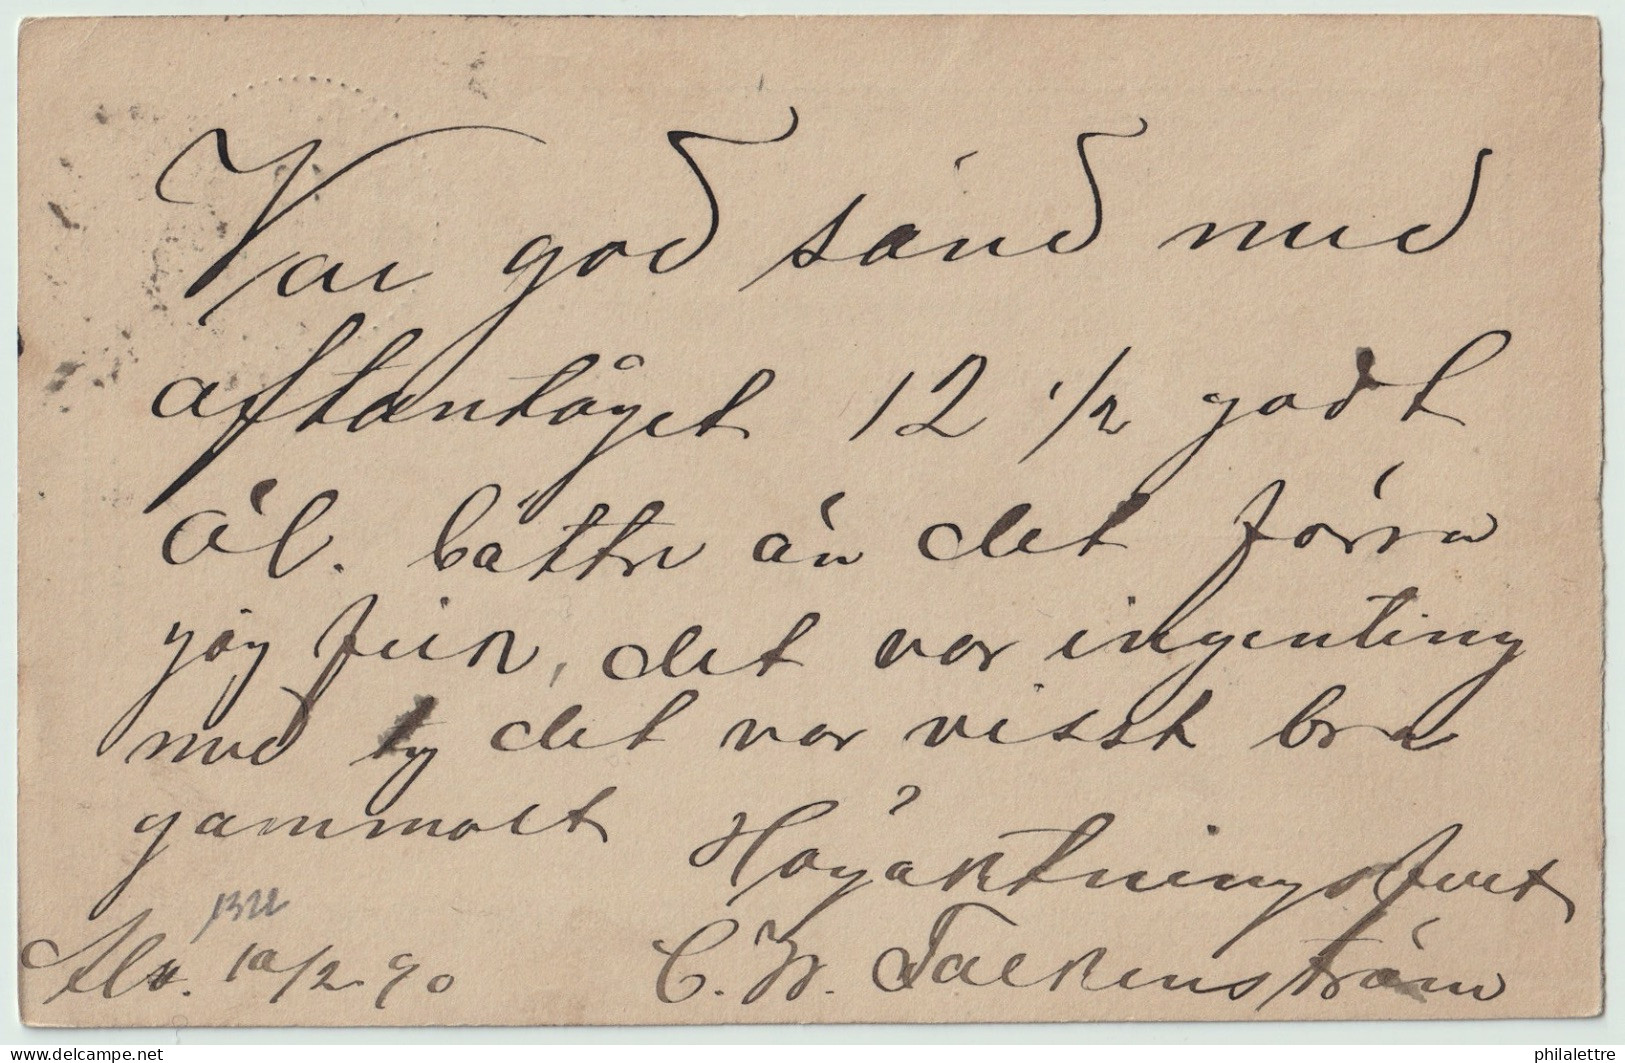 Var god sänd med
aftontåget 12 1/2 godt
öl. bättre än det förra
jag fick, det var ingenting
med ty det var visst bra
gammalt Högaktningsfullt
10/2 90 C. W. Falkenström
philalettre.com